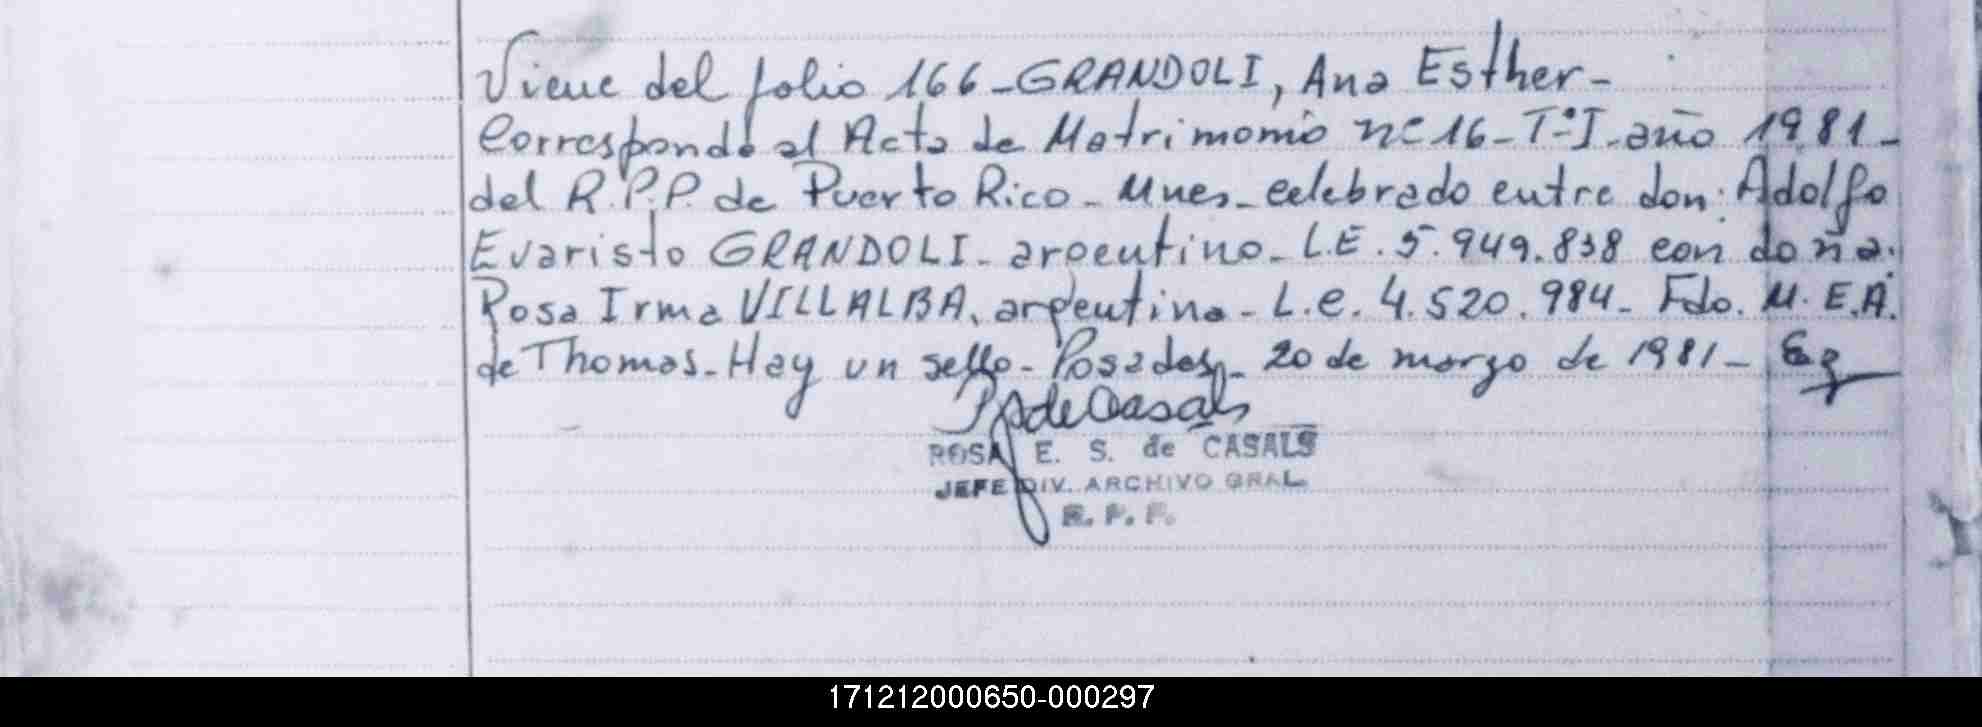 Viene del folio 166-GRANDOLI, Ana Esther-
Corresponde al Acta de Matrimonio nº 16-TºI-año 1981-
del R.P.P. de Puerto Rico-Mnes-celebrado entre don: Adolfo
Evaristo GRANDOLI-argentino-L.E. 5.949.838 con doña:
Rosa Irma VILLALBA, argentina-L.C. 4.520.984-Fdo. M.E.A.
de Thomas-Hay un sello-Posadas-20 de marzo de 1981-
RSdeCasals
ROSA E. S. de CASALS
JEFE DIV. ARCHIVO GRAL.
R. P. P.
171212000650-000297